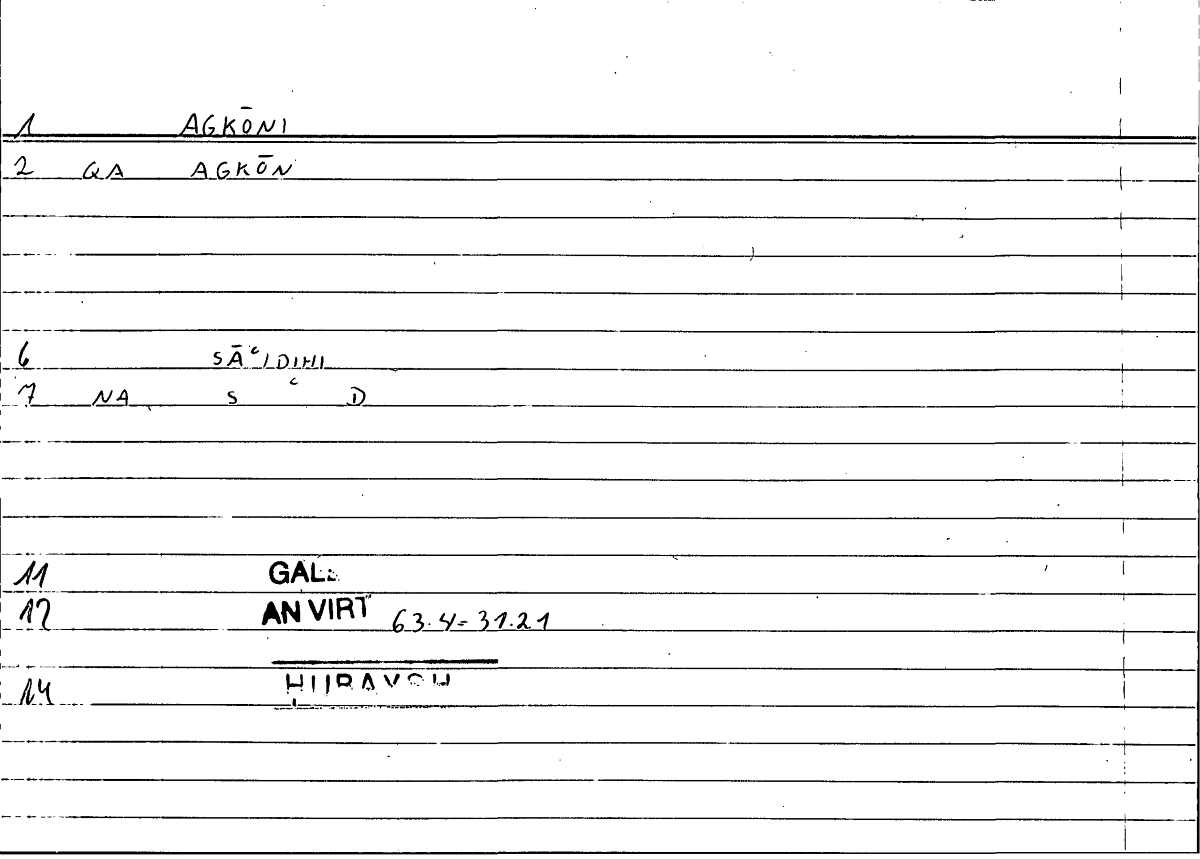 1 AGKŌNI
2 QA AGKŌN
6 SĀʿIDIHI
7 NA S ʿ D
11 GAL
12 AN VIRT 63.4=31.21
14